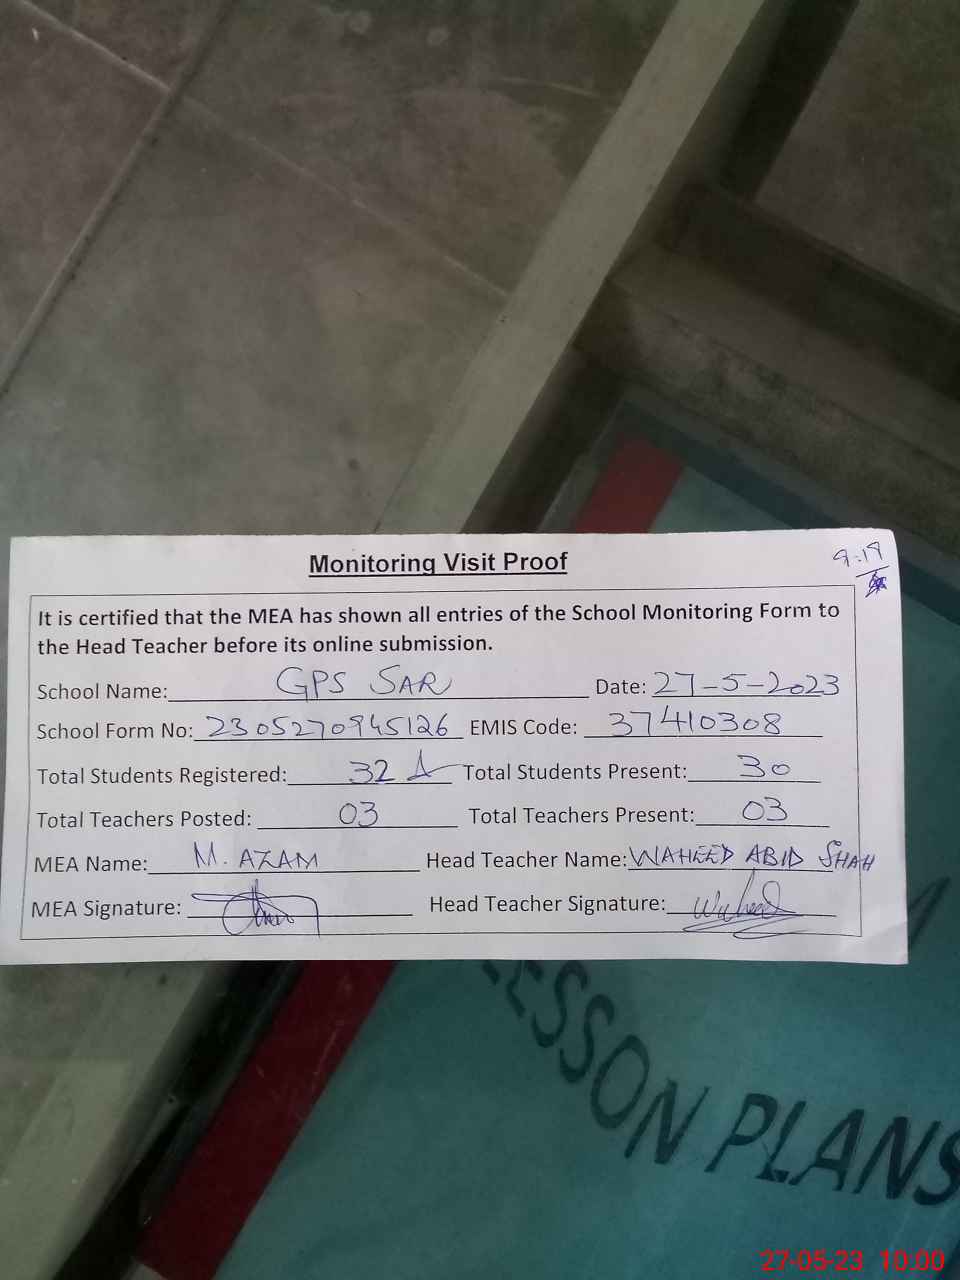 Monitoring Visit Proof
9:19
It is certified that the MEA has shown all entries of the School Monitoring Form to
the Head Teacher before its online submission.
School Name: GPS SAR Date: 27-5-2023
School Form No: 2305270945126 EMIS Code: 37410308
Total Students Registered: 32 Total Students Present: 30
Total Teachers Posted: 03 Total Teachers Present: 03
MEA Name: M. AZAM Head Teacher Name: WAHEED ABID SHAH
MEA Signature: Head Teacher Signature: Waheed
LESSON PLANS
27-05-23 10:00